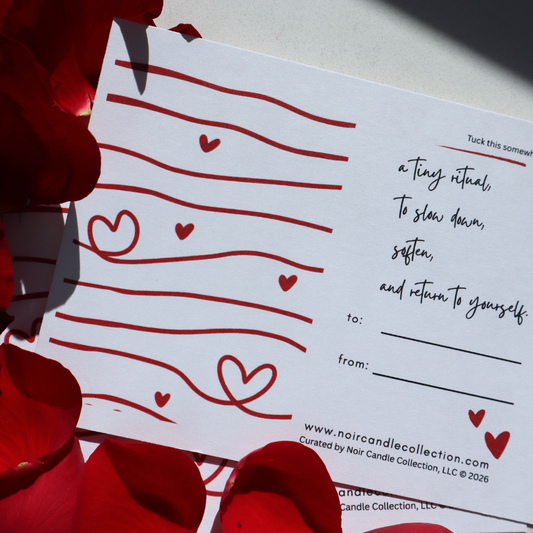 Tuck this
a tiny ritual,
to slow down,
soften,
and return to yourself.
to:
from:
www.noircandlecollection.com
Curated by Noir Candle Collection, LLC © 2026
Candle Collection, LLC